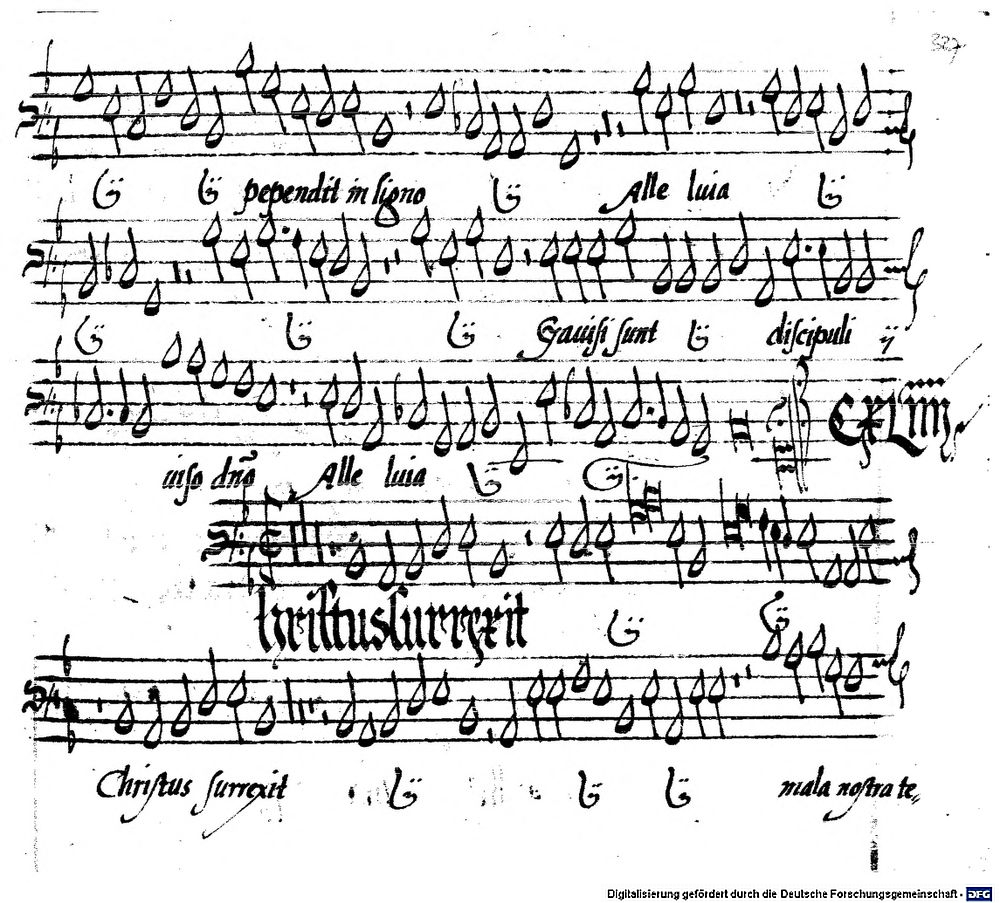 327
pependit in ligno Alle luia
Gavisi sunt discipuli ij
viso dño Alle luia
CXLIIII
hristus surrexit
Christus surrexit mala nostra te„
Digitalisierung gefördert durch die Deutsche Forschungsgemeinschaft - DFG